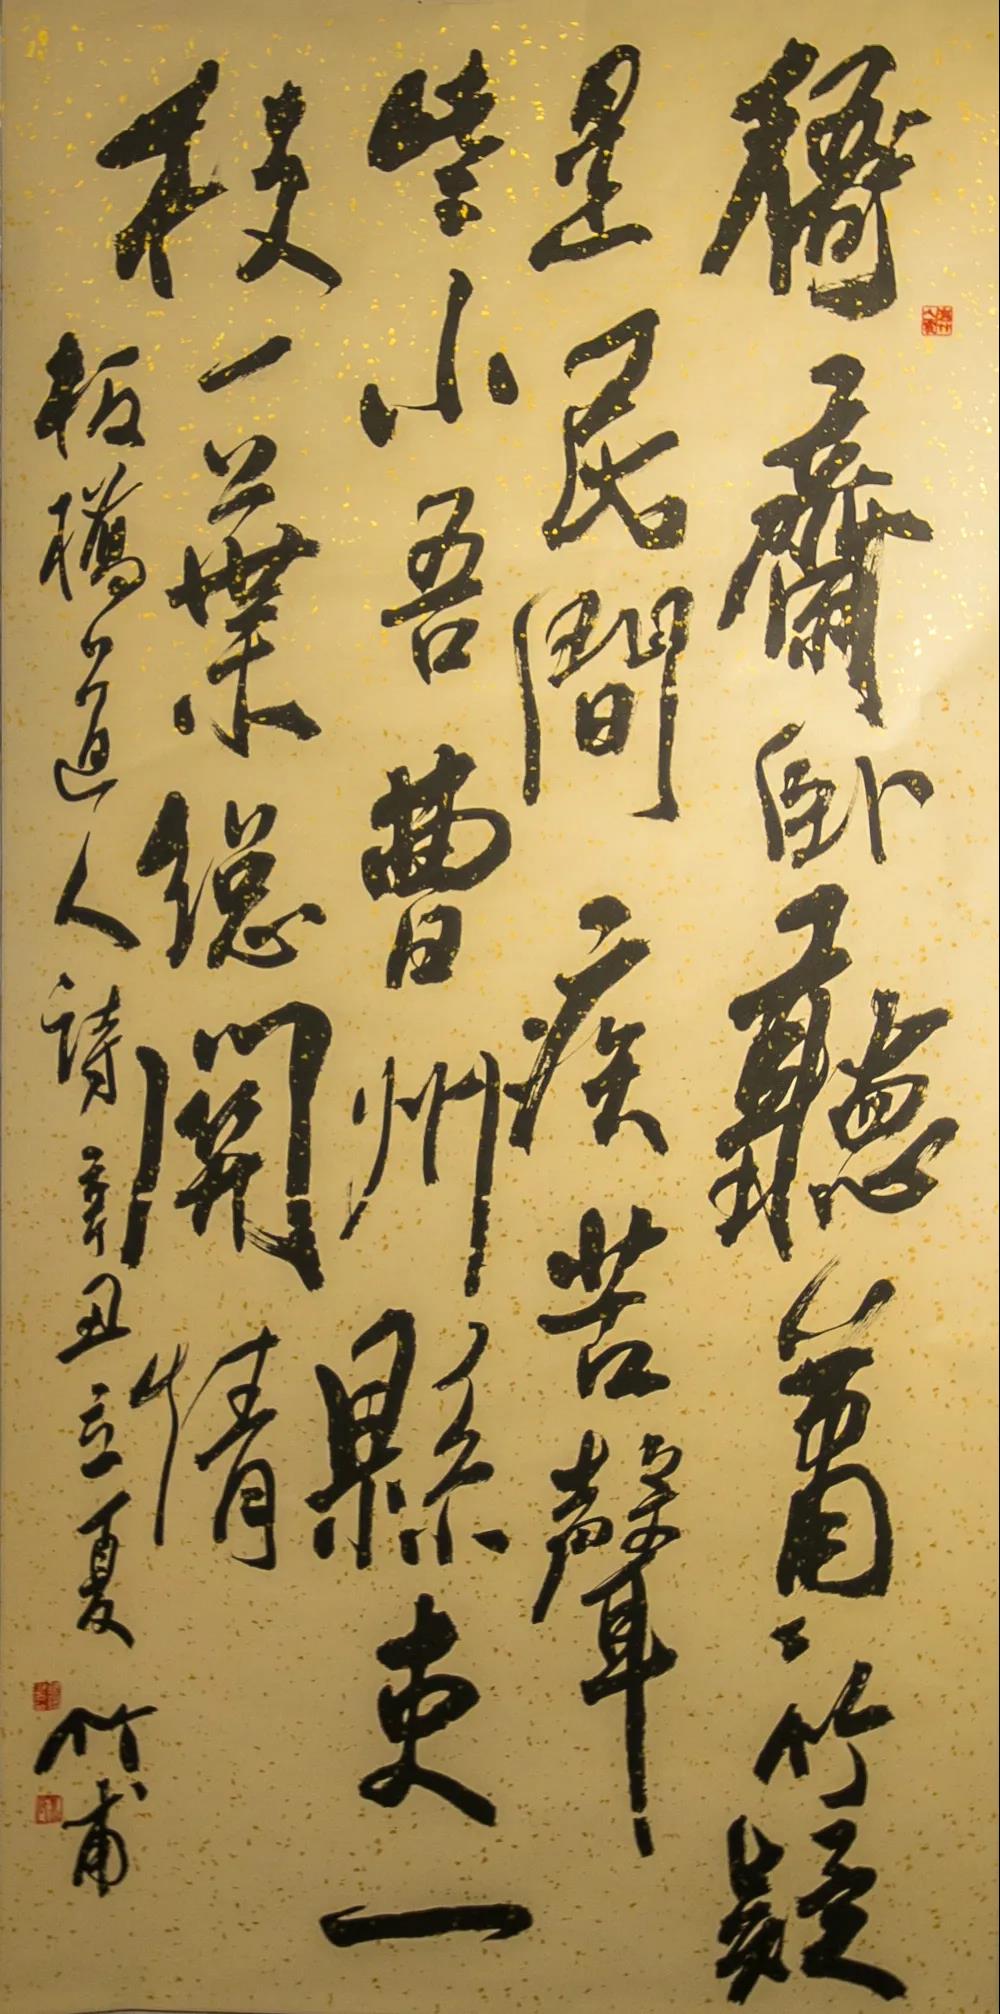 衙齋卧聽蕭〻竹疑
是民間疾苦聲
些小吾曹州縣吏一
枝一葉總關情
板橋道人詩辛丑立夏 竹甫